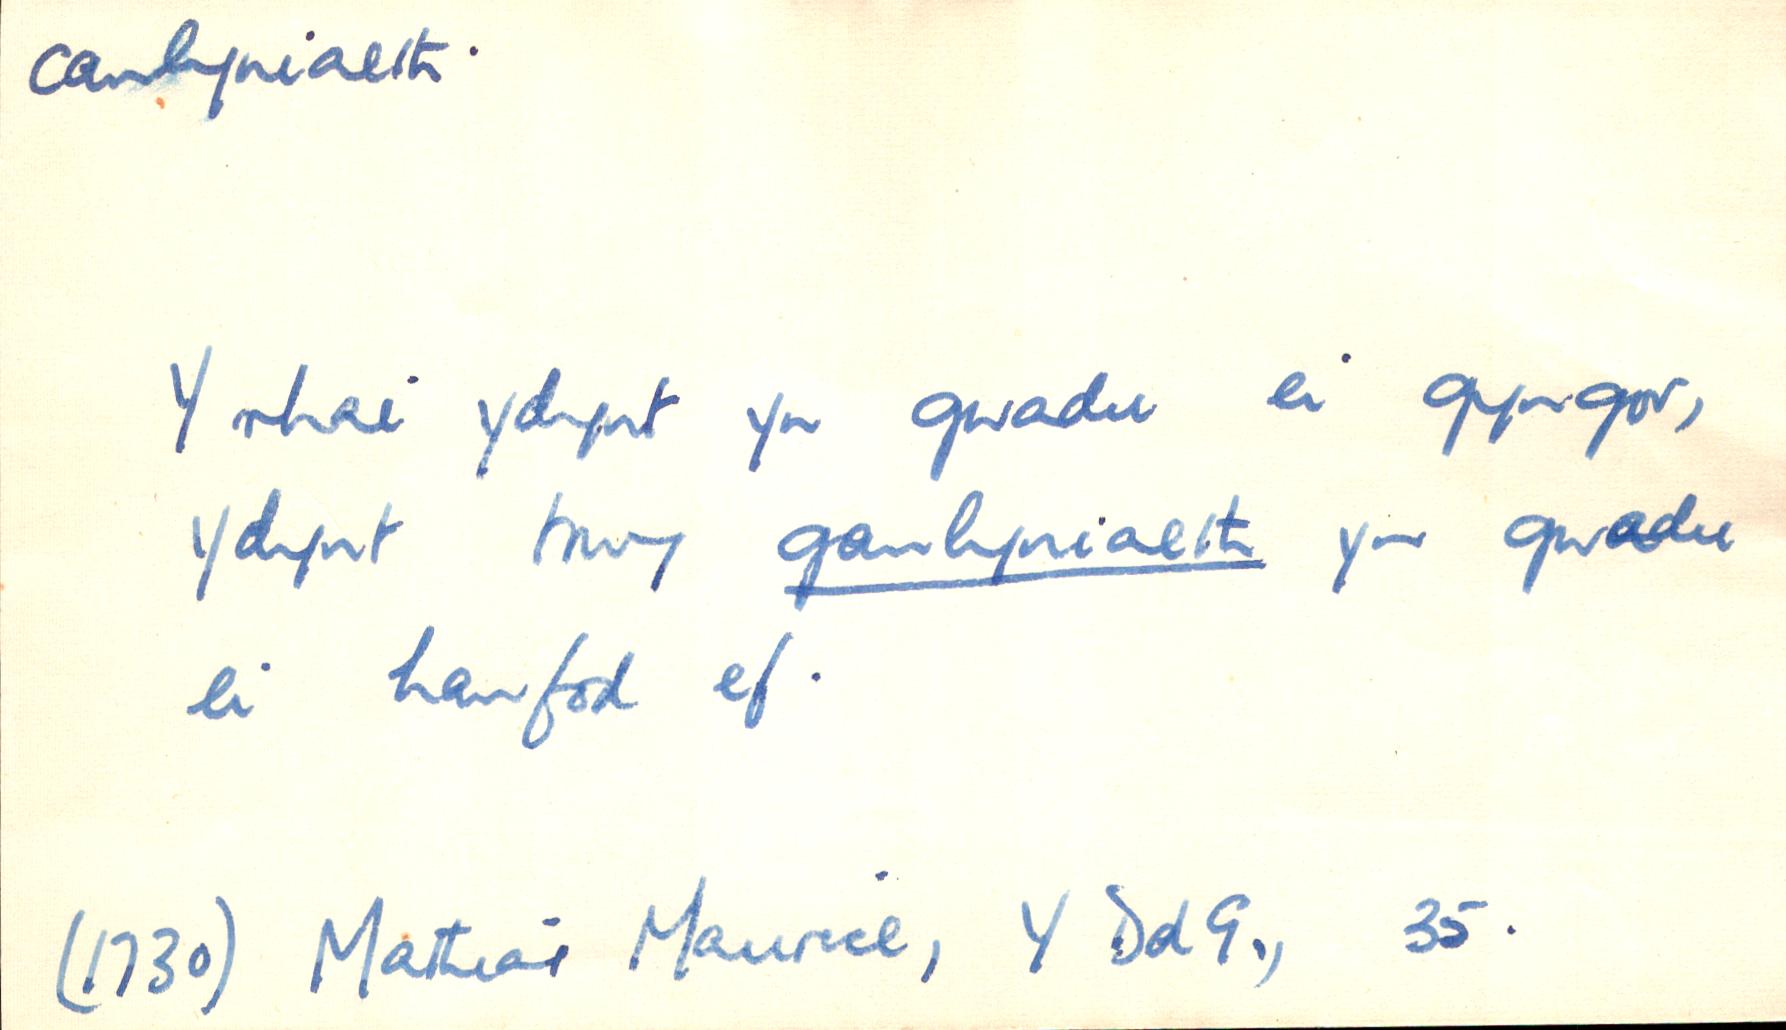 canlyniaeth.
Y rhai ydynt yn gwadu ei gyngor,
ydynt trwy ganlyniaeth yn gwadu
ei hanfod ef.
(1730) Mathias Maurice, Y DdG., 35.